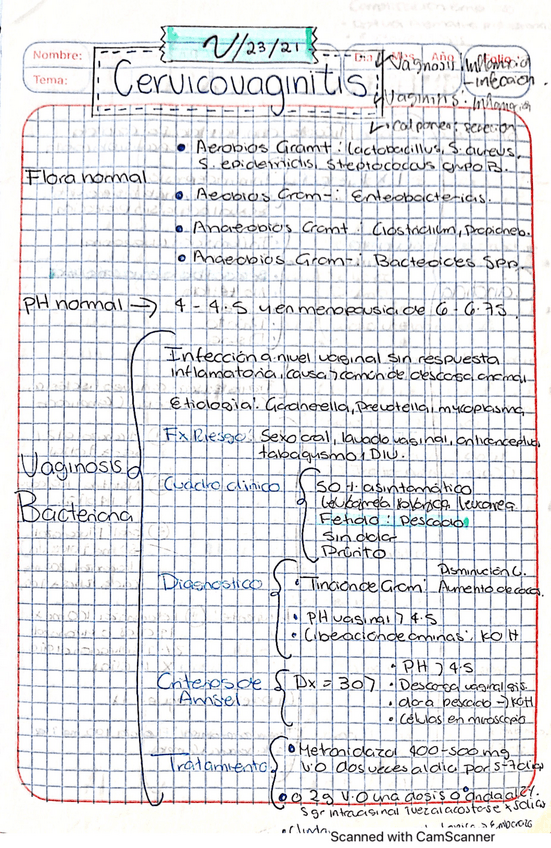 V/23/21
Nombre: Día Mes Año Folio
Tema:
Cervicovaginitis
Vagnosis: Inflamación
- infección.
Vaginitis: Inflamación
Flora normal
• Aerobios Gram+: lactobacillus, S. aureus,
S. epidermidis, Streptococus grupo B.
• Aerobios Gram-: Enterobacterias.
• Anaerobios Gram+: Clostridium, Propioneb.
• Anaerobios Gram-: Bacteoices Spp.
pH normal → 4 - 4.5 y en menopausia de 6 - 6.75.
Vaginosis
Bacteriana
Infección a nivel vaginal sin respuesta
inflamatoria, causa > común de descarga anormal
Etiologia: Gardnerella, Prevotella, mycoplasma
Fx Riesgo: Sexo oral, lavado vaginal, anticonceptivo,
tabaquismo, DIU.
Cuadro clinico
50% asintomático
leucorrea
Fetido: Pescado
Sin dolor
Prurito
Diagnostico
Disminución L.
• Tinción de Gram: Aumento de cocos.
• PH vaginal > 4.5
• Liberación de aminas: KOH
Criterios de
Amsel
Dx = 3 o >
• PH > 4.5
• Descarga vaginal gris
• olor a pescado → KOH
• Células en microscopio
Tratamiento
• Metronidazol 400-500 mg
V.O dos veces al dia por 5-7 dias
• o 2g V.O una dosis o
5 gr intravaginal 1 vez al acostarse x 5 dias
• Clinda
Scanned with CamScanner